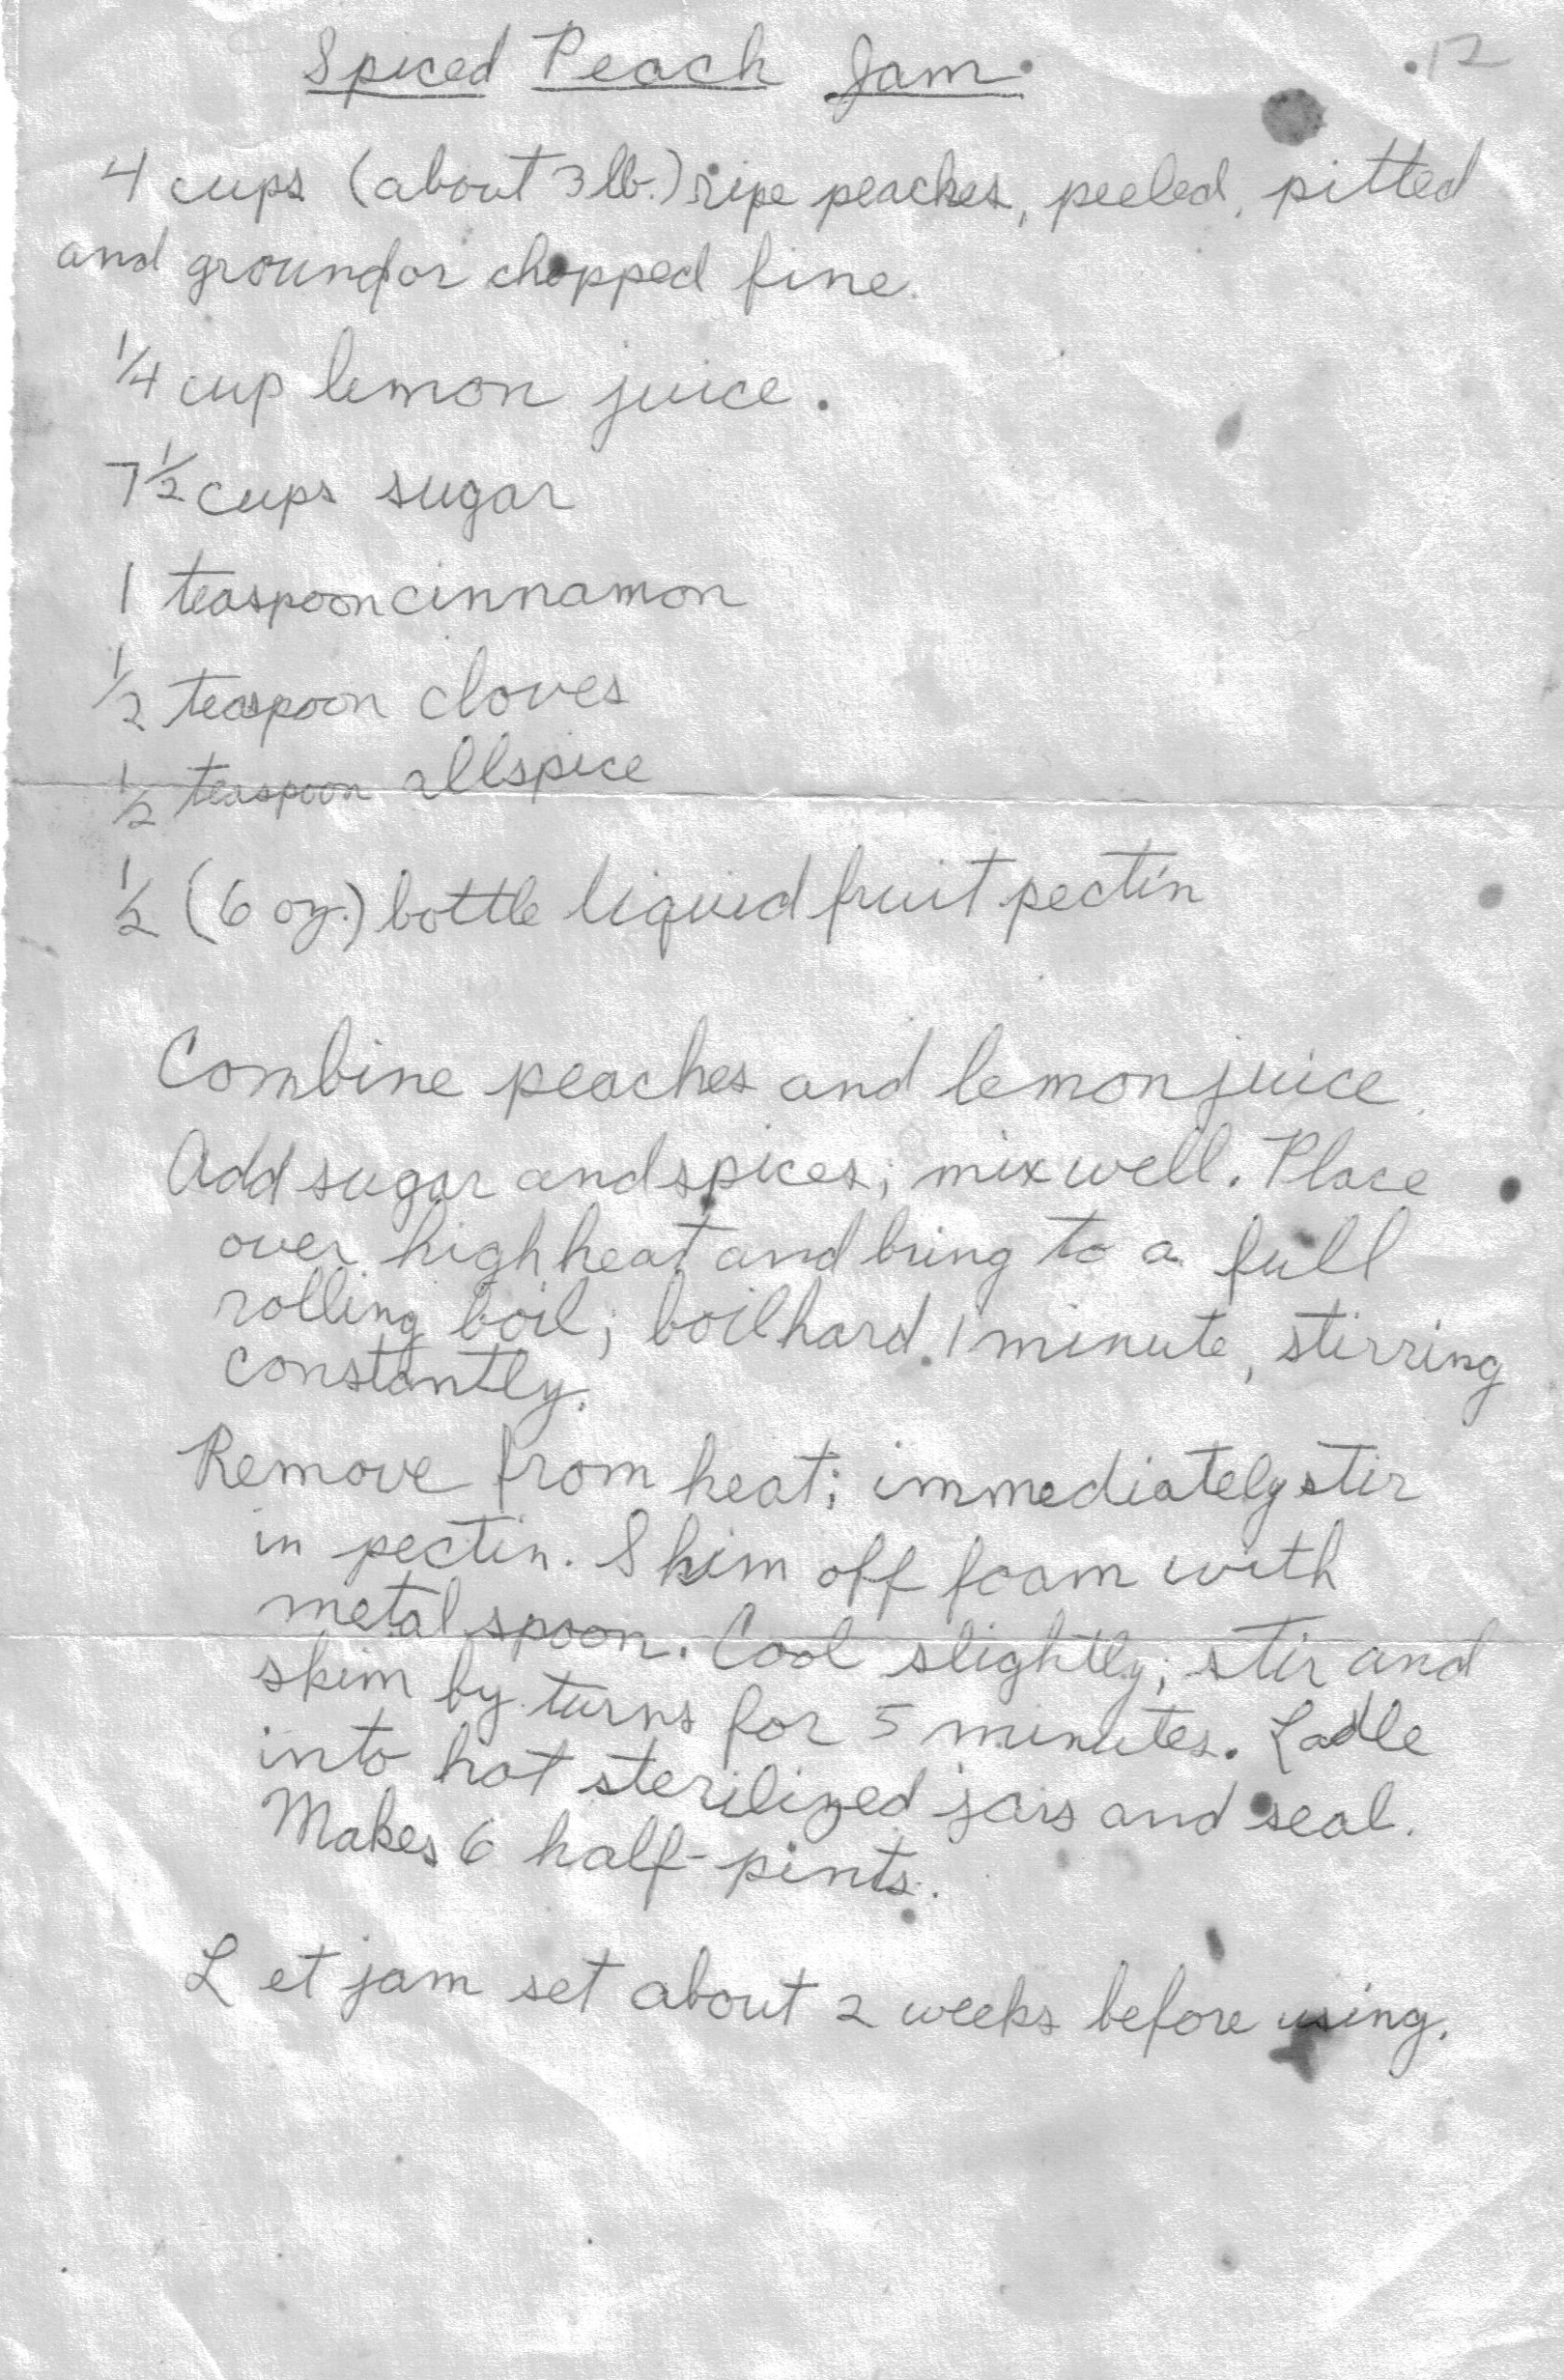 Spiced Peach Jam
12
4 cups (about 3 lb.) ripe peaches, peeled, pitted
and ground or chopped fine.
1/4 cup lemon juice.
7 1/2 cups sugar
1 teaspoon cinnamon
1/2 teaspoon cloves
1/2 teaspoon allspice
1/2 (6 oz.) bottle liquid fruit pectin
Combine peaches and lemon juice.
Add sugar and spices; mix well. Place
over high heat and bring to a full
rolling boil; boil hard 1 minute, stirring
constantly.
Remove from heat; immediately stir
in pectin. Skim off foam with
metal spoon. Cool slightly; stir and
skim by turns for 5 minutes. Ladle
into hot sterilized jars and seal.
Makes 6 half-pints.
Let jam set about 2 weeks before using.